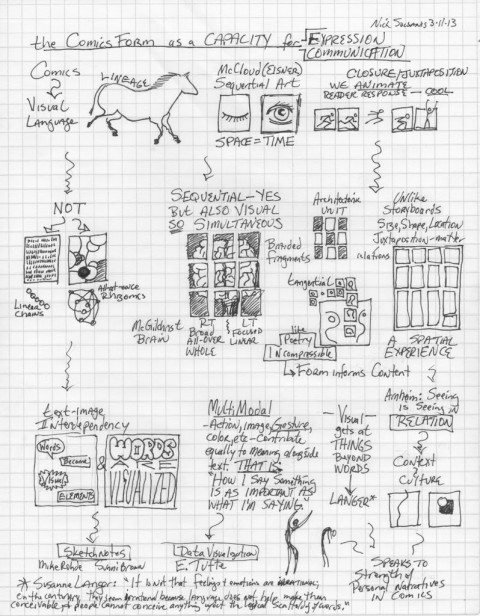 Nick Sousanis 3-11-13
the Comics Form as a CAPACITY for EXPRESSION
COMMUNICATION
Comics
Visual
Language
LINEAGE
McCloud (EISNER)
Sequential Art
SPACE=TIME
CLOSURE/JUXTAPOSITION
WE ANIMATE
READER RESPONSE — COOL
NOT
Linear
Chains
All-at-once
Rhizomes
SEQUENTIAL—YES
BUT ALSO VISUAL
SO SIMULTANEOUS
Braided
fragments
McGilchrist
Brain
RT
Broad
All-Over
WHOLE
LT
Focused
LINEAR
Architectonic
UNIT
tangential
like
Poetry
INcompressible
Form informs Content
Unlike
Storyboards
Size, Shape, Location
Juxtaposition-matter
relations
A SPATIAL
EXPERIENCE
text-Image
Interdependency
Words
Become
Visual
ELEMENTS
&
WORDS
ARE
VISUALIZED
SketchNotes
Mike Rohde Sunni Brown
MultiModal
-Action, image, Gesture,
color, etc-Contribute
equally to Meaning alongside
text. THAT IS
"HOW I SAY Something
IS AS IMPORTANT AS
WHAT I'M SAYING.
Data Visualization
E. Tufte
Visual
gets at
THINGS
BEYOND
WORDS
LANGER*
Arnheim: Seeing
is Seeing in
RELATION
Context
Culture
SPEAKS TO
Strength of
Personal Narratives
IN COMICS
* Susanne Langer: "It is not that feelings & emotions are irrational,
on the contrary, they seem irrational because language does not help make them
conceivable, & people cannot conceive anything w/out the logical scaffolding of words."